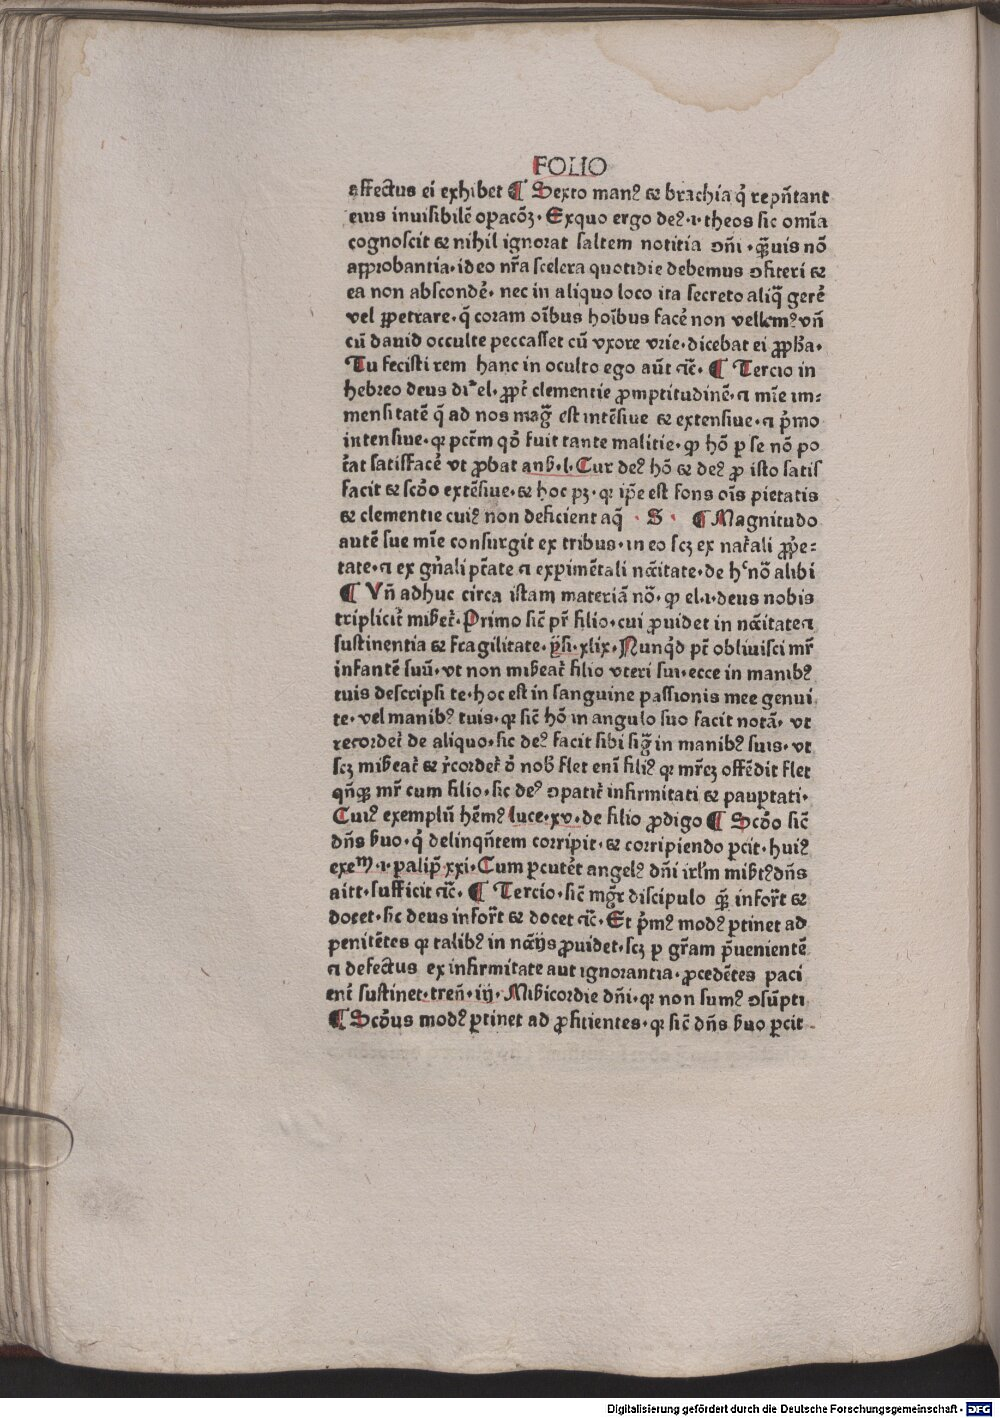 FOLIO
affectus ei exhibet ¶ Sexto manꝰ ⁊ brachia q̇ rep̄ñtant
eius inuisibilē oꝑacōꝫ. Exquo ergo deꝰ .i. theos sic om̄ia
cognoscit ⁊ nihil ignorat saltem notitia ↄñi . qꝫuis nō
approbantia. ideo nr̄a scelera quotidie debemus ↄfiteri ⁊
ea non abscondē. nec in aliquo loco ita secreto aliq̄ gerē
vel ꝑpetrare. q̄ coram oībus hoībus facē non vellemꝰ vñ
cū dauid occulte peccasset cū vxore vrie. dicebat ei ꝓpħa.
Tu fecisti rem hanc in oculto ego aūt ⁊c̄. ¶ Tercio in
hebreo deus dr̄ el. ꝓpt̄ clementie ꝓmptitudinē. ⁊ mīe im⸗
mensitatē q̄ ad nos maḡ est intēsiue ⁊ extensiue. ⁊ p̄mo
intensiue. qꝛ pctm̄ qō fuit tante malitie. ꝙ hō ꝑ se nō po
tat̄ satisfacē vt ꝓbat anß. l. Cur deꝰ hō ⁊ deꝰ ꝓ isto satis
facit ⁊ scd̄o extēsiue. ⁊ hoc pꝫ. qꝛ ip̄e est fons oīs pietatis
⁊ clementie cuiꝰ non deficient aq̄ . S . ¶ Magnitudo
autē sue mīe consurgit ex tribus. in eo scꝫ ex nat̄ali ꝓp̄e⸗
tate. ⁊ ex gn̄ali pt̄ate ⁊ expimētali nc̄itate. de hͨ nō alibi
¶ Vñ adhuc circa istam materiā nō. ꝙ el .i. deus nobis
triplicit̄ miẞet̄. Primo sic̄ pr̄ filio. cui ꝓuidet in nc̄itate ⁊
sustinentia ⁊ fragilitate. ysi. xlix. Nunqͥd pt̄ obliuisci mr̄
infantē suū. vt non miẞeat̄ filio vteri sui. ecce in manibꝰ
tuis descripsi te. hoc est in sanguine passionis mee genui
te. vel manibꝰ tuis. qꝛ sic̄ hō in angulo suo facit notā. vt
recordet̄ de aliquo. sic deꝰ facit sibi siḡ in manibꝰ suis. vt
scꝫ miẞeat̄ ⁊ r̄cordet̄ ō nob̄ flet enī filiꝰ qꝛ mr̄eꝫ offēdit flet
qn̄qꝫ mr̄ cum filio. sic deꝰ ↄpatit̄ infirmitati ⁊ pauꝑtati.
Cuiꝰ exemplū hēmꝰ luce. xv. de filio ꝓdigo ¶ Scd̄o sic̄
dn̄s ẞuo. q̇ delinqn̄tem corripit. ⁊ corripiendo ꝑcit. huiꝰ
exeᵐ .i. palip̄. xxi. Cum ꝑcutēt angelꝰ dn̄i irl̄m miẞtꝰ dn̄s
aitt. sufficit ⁊c̄. ¶ Tercio. sic̄ mgr̄ discipulo qꝫ infor̄t ⁊
docet. sic deus infor̄t ⁊ docet ⁊c̄. Et p̄mꝰ modꝰ ꝑtinet ad
penitētes qꝛ talibꝰ in nc̄ijs ꝓuidet. scꝫ ꝑ gr̄am p̄uenientē
⁊ defectus ex infirmitate aut ignorantia. ꝓcedētes paci
ent̄ sustinet. treñ. iij. Miẞicordie dn̄i. qꝛ non sumꝰ ↄsūpti
¶ Scd̄us modꝰ ꝑtinet ad ꝓfitientes. qꝛ sic̄ dn̄s ẞuo ꝑcit
Digitalisierung gefördert durch die Deutsche Forschungsgemeinschaft - DFG